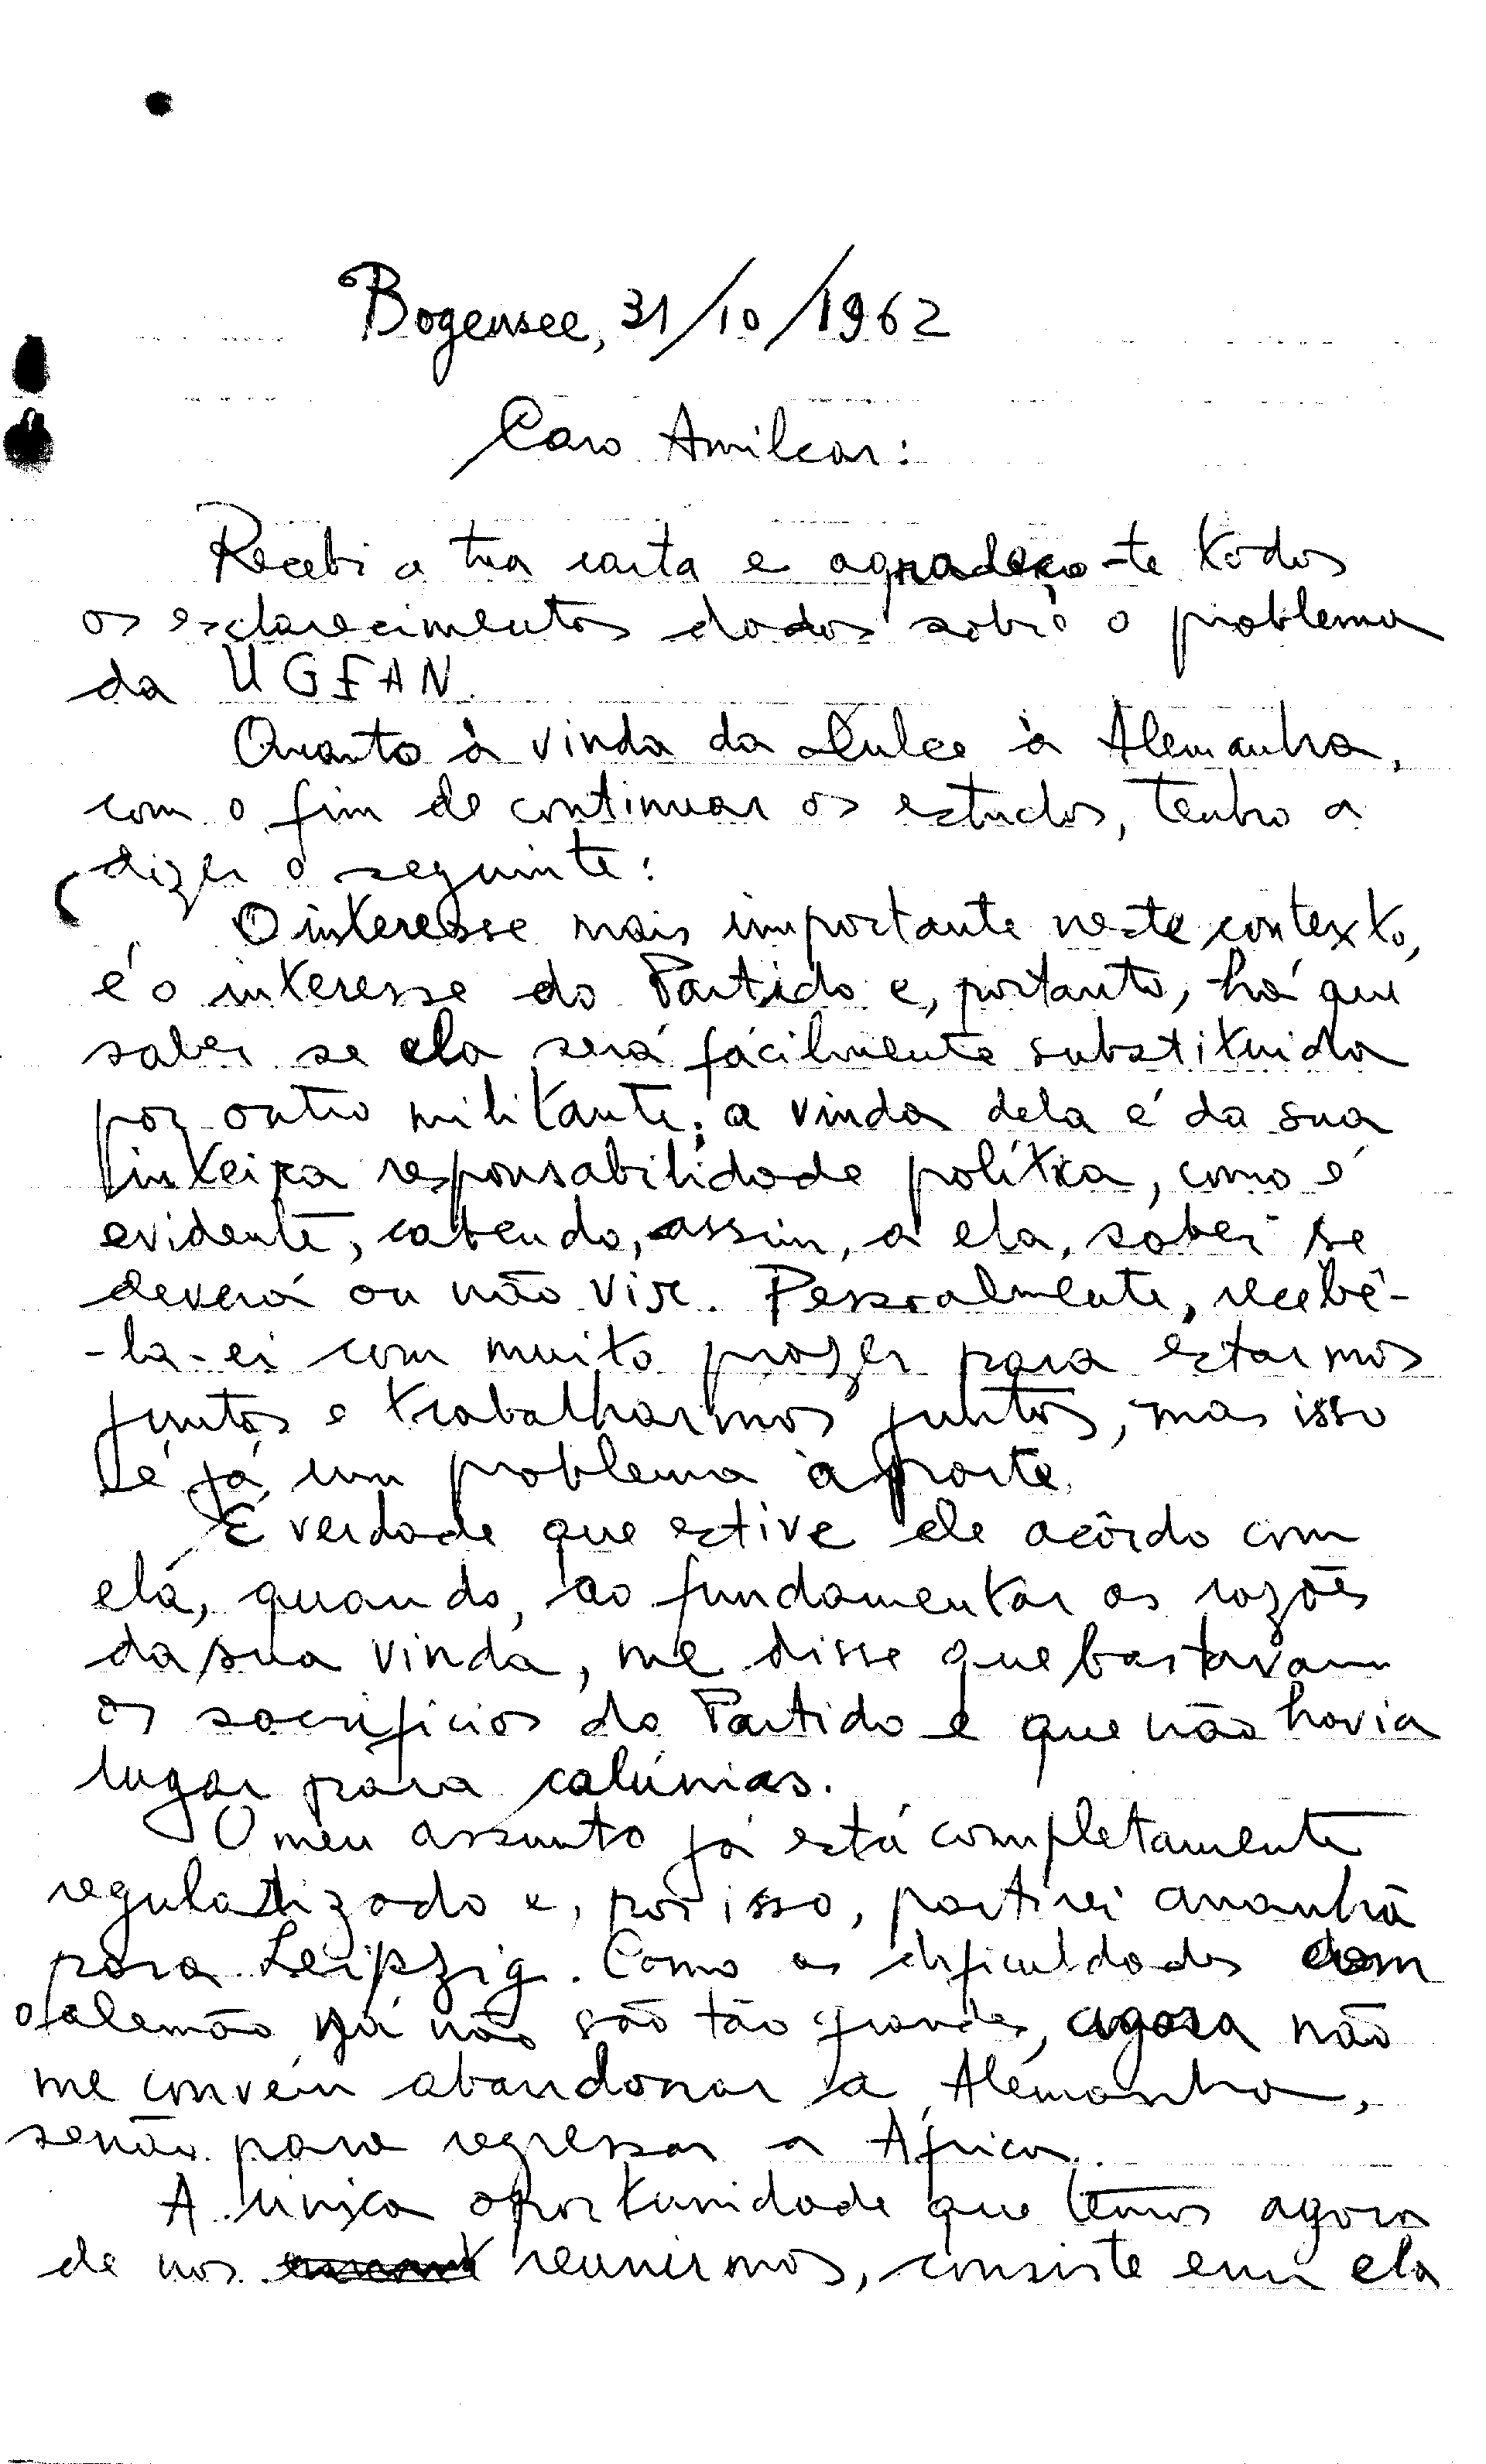 Bogensee, 31/10/1962
Caro Amilcar:
Recebi a tua carta e agradeço-te todos
os esclarecimentos dados sobre o problema
da UGEAN.
Quanto à vinda da Dulce à Alemanha,
com o fim de continuar os estudos, tenho a
dizer o seguinte:
O interesse mais importante neste contexto,
é o interesse do Partido e, portanto, há que
saber se ela será fàcilmente substituida
por outro militante; a vinda dela é da sua
inteira responsabilidade política, como é
evidente, cabendo, assim, a ela, saber se
deverá ou não vir. Pessoalmente, recebê-
-la-ei com muito prazer para estarmos
juntos e trabalharmos juntos, mas isso
é já um problema àparte.
É verdade que estive de acôrdo com
ela, quando, ao fundamentar as razões
da sua vinda, me disse que bastavam
os sacrifícios do Partido e que não havia
lugar para calúnias.
O meu assunto já está completamente
regularizado e, por isso, partirei amanhã
para Leipzig. Como as dificuldades com
o alemão já não são tão grandes, agora não
me convém abandonar a Alemanha,
senão para regressar a África.
A única oportunidade que temos agora
de nos reunirmos, consiste em ela